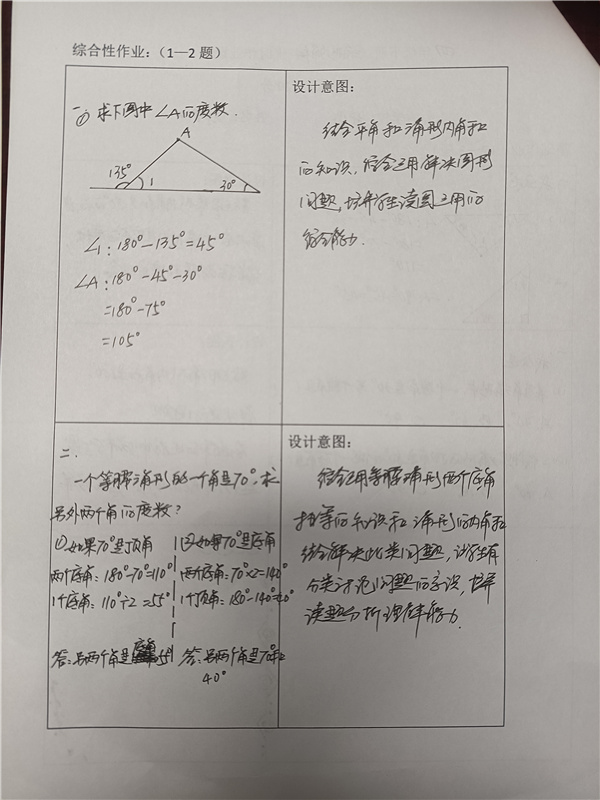 综合性作业：（1—2 题）
一、① 求下图中∠A的度数.
A
135°
1
30°
∠1：180°-135°=45°
∠A：180°-45°-30°
=180°-75°
=105°
设计意图：
结合平角和三角形内角和
的知识，综合运用解决图形
问题，培养学生读图运用的
综合能力.
二.
一个等腰三角形的一个角是70°，求
另外两个角的度数？
(1)如果70°是顶角
两个底角：180°-70°=110°
1个底角：110°÷2=55°
答：另两个角是55°
(2)如果70°是底角
两个底角：70°×2=140°
1个顶角：180°-140°=40°
答：另两个角是70°和
40°
设计意图：
综合运用等腰三角形两个底角
相等的知识和三角形的内角和
结合解决此类问题，让学生有
分类讨论问题的意识，培养
读题分析理解能力.